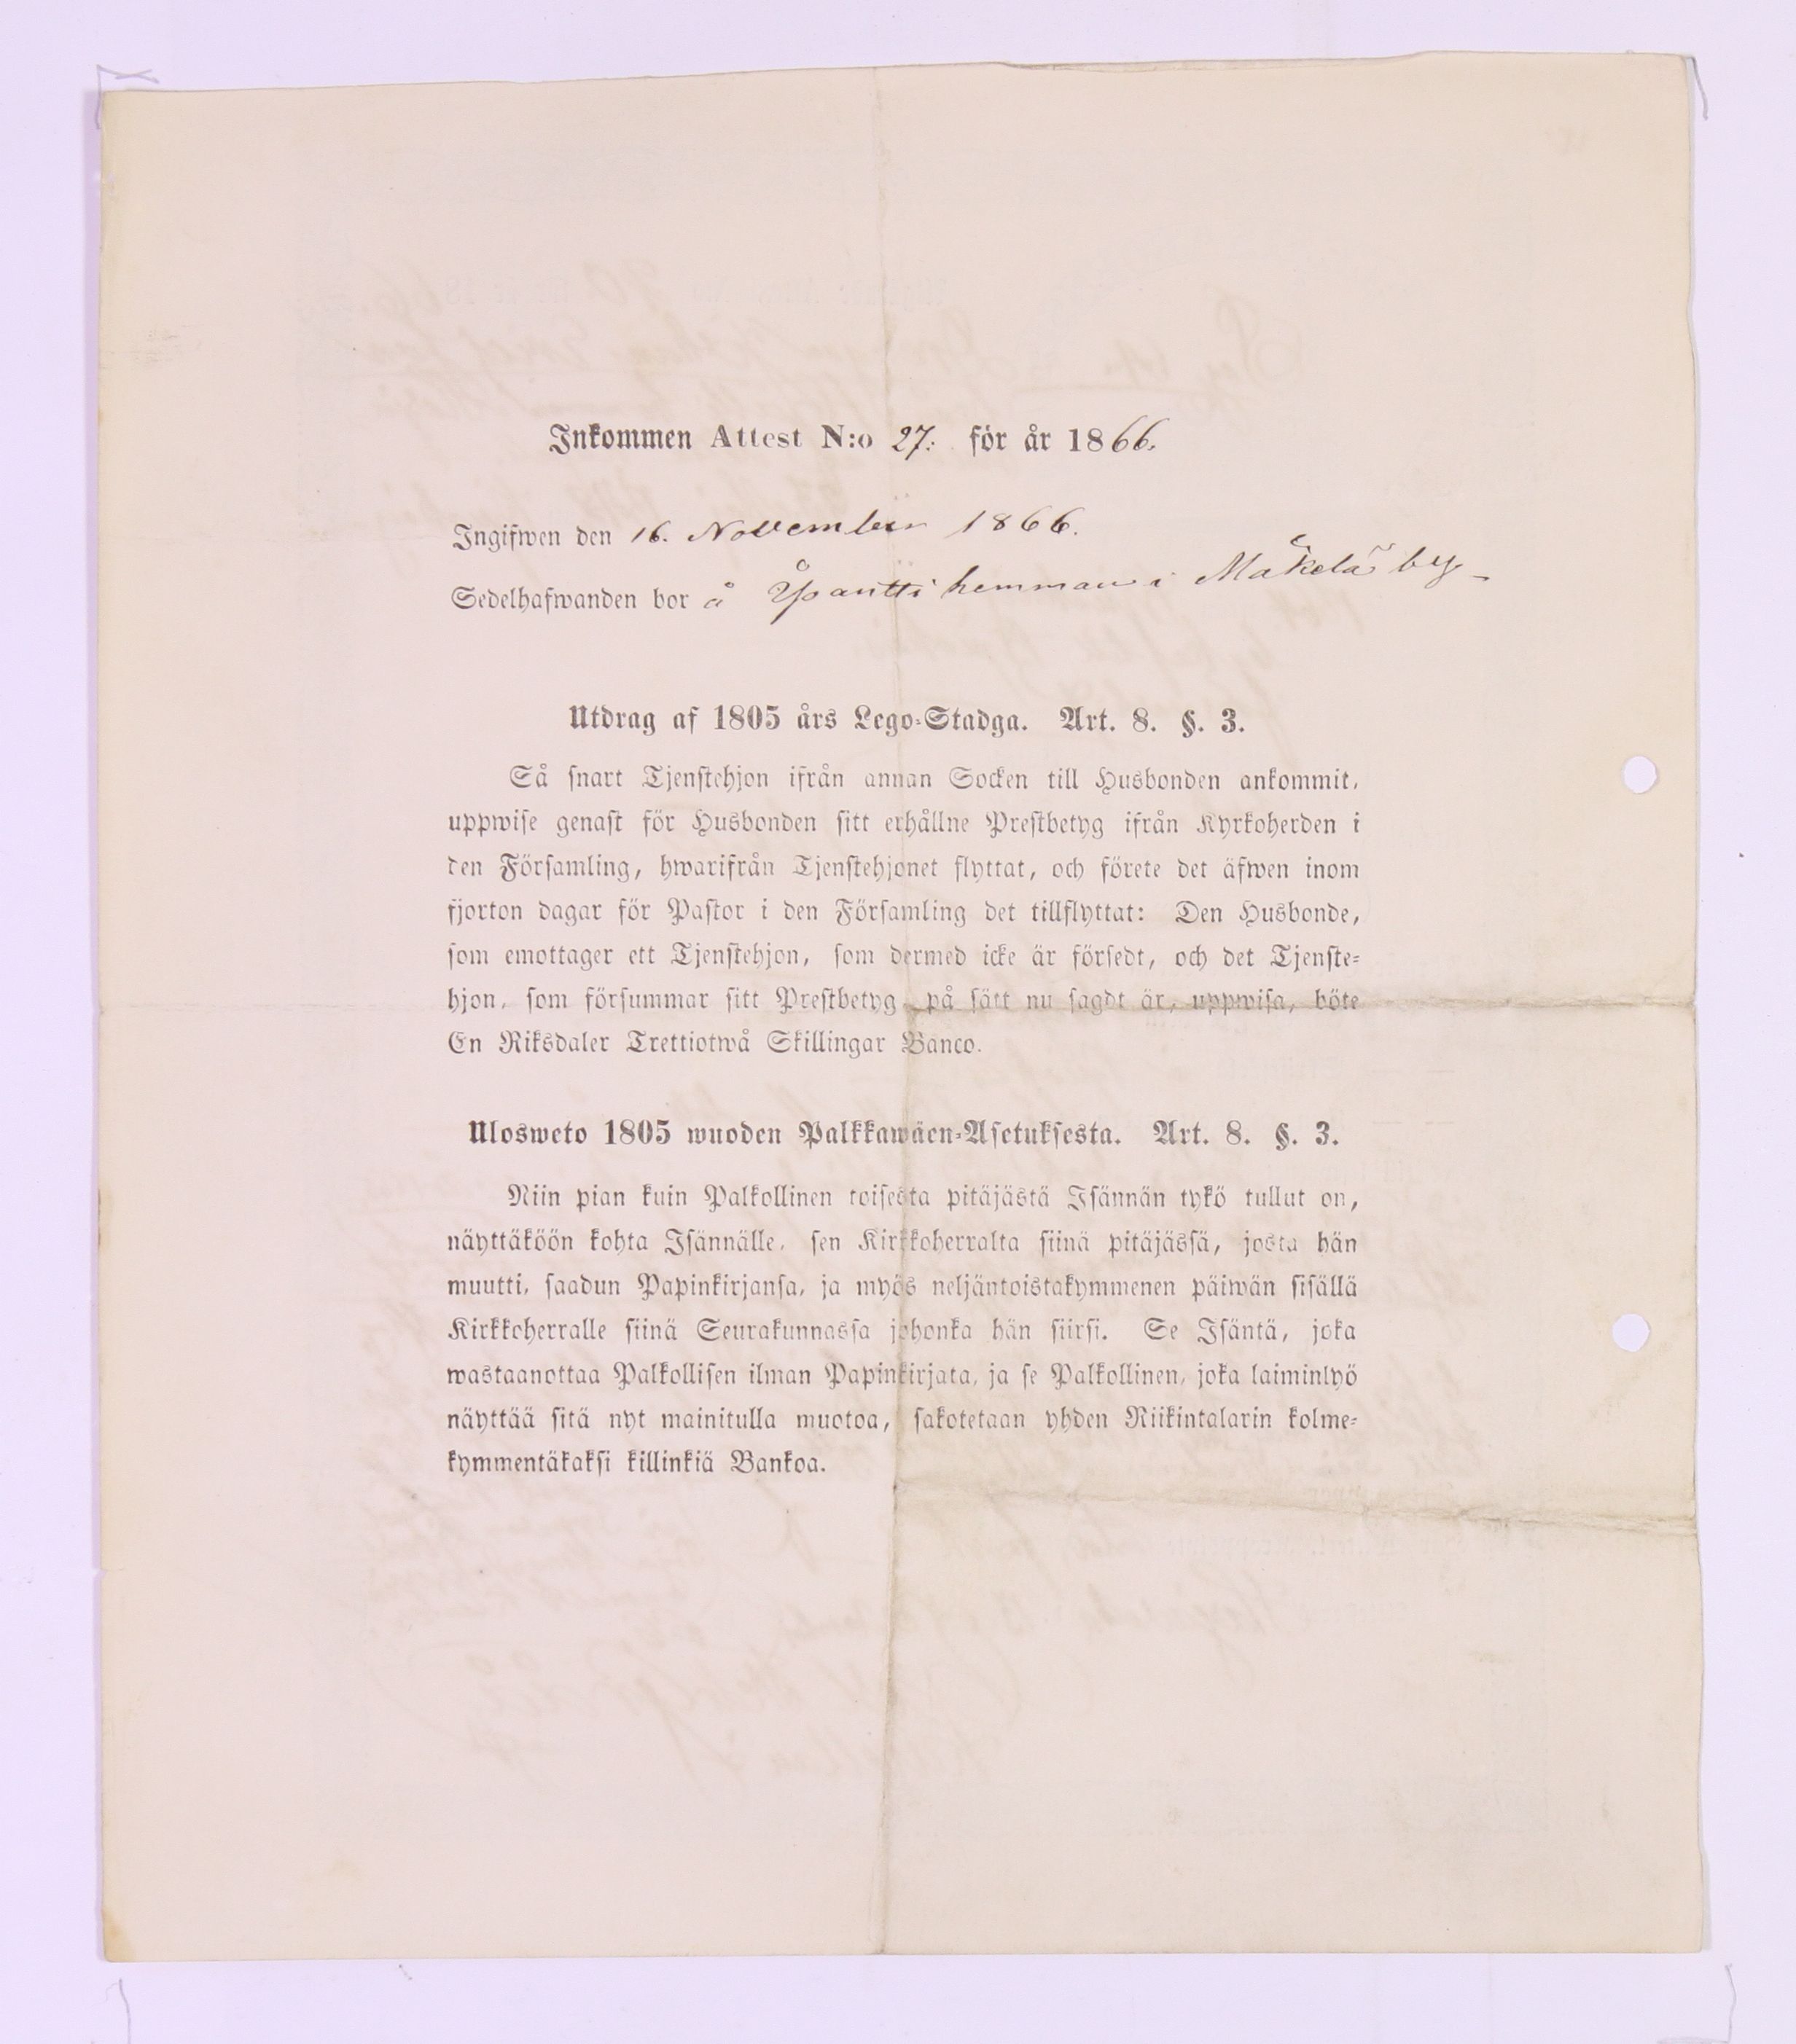 Inkommen Attest N:o 27. för år 1866.
Ingifwen den 16. November 1866.
Sedelhafwanden bor å Ypantti hemman i Mäkelä by
Utdrag af 1805 års Lego-Stadga. Art. 8. §. 3.
Så snart Tjenstehjon ifrån annan Socken till Husbonden ankommit,
uppwise genast för Husbonden sitt erhållne Prestbetyg ifrån Kyrkoherden i
den Församling, hwarifrån Tjenstehjonet flyttat, och förete det äfwen inom
fjorton dagar för Pastor i den Församling det tillflyttat: Den Husbonde,
som emottager ett Tjenstehjon, som dermed icke är försedt, och det Tjenste-
hjon, som försummar sitt Prestbetyg på sätt nu sagdt är, uppwisa, böte
En Riksdaler Trettiotwå Skillingar Banco.
Ulosweto 1805 wuoden Palkkawäen-Asetuksesta. Art. 8. §. 3.
Niin pian kuin Palkollinen toisesta pitäjästä Isännän tykö tullut on,
näyttäköön kohta Isännälle, sen Kirkkoherralta siinä pitäjässä, josta hän
muutti, saadun Papinkirjansa, ja myös neljäntoistakymmenen päiwän sisällä
Kirkkoherralle siinä Seurakunnassa johonka hän siirsi. Se Isäntä, joka
wastaanottaa Palkollisen ilman Papinkirjata, ja se Palkollinen, joka laiminlyö
näyttää sitä nyt mainitulla muotoa, sakotetaan yhden Riikintalarin kolme-
kymmentäkaksi killinkiä Bankoa.